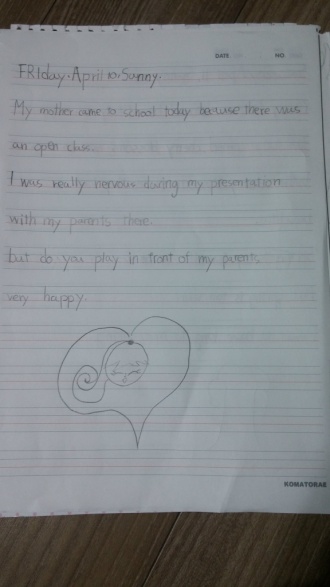 DATE
NO
FRIday. April 10. Sunny.
My mother came to school today because there was
an open class.
I was really nervous during my presentation
with my parents there.
but do you play in front of my parents.
very happy.
KOMATORAE